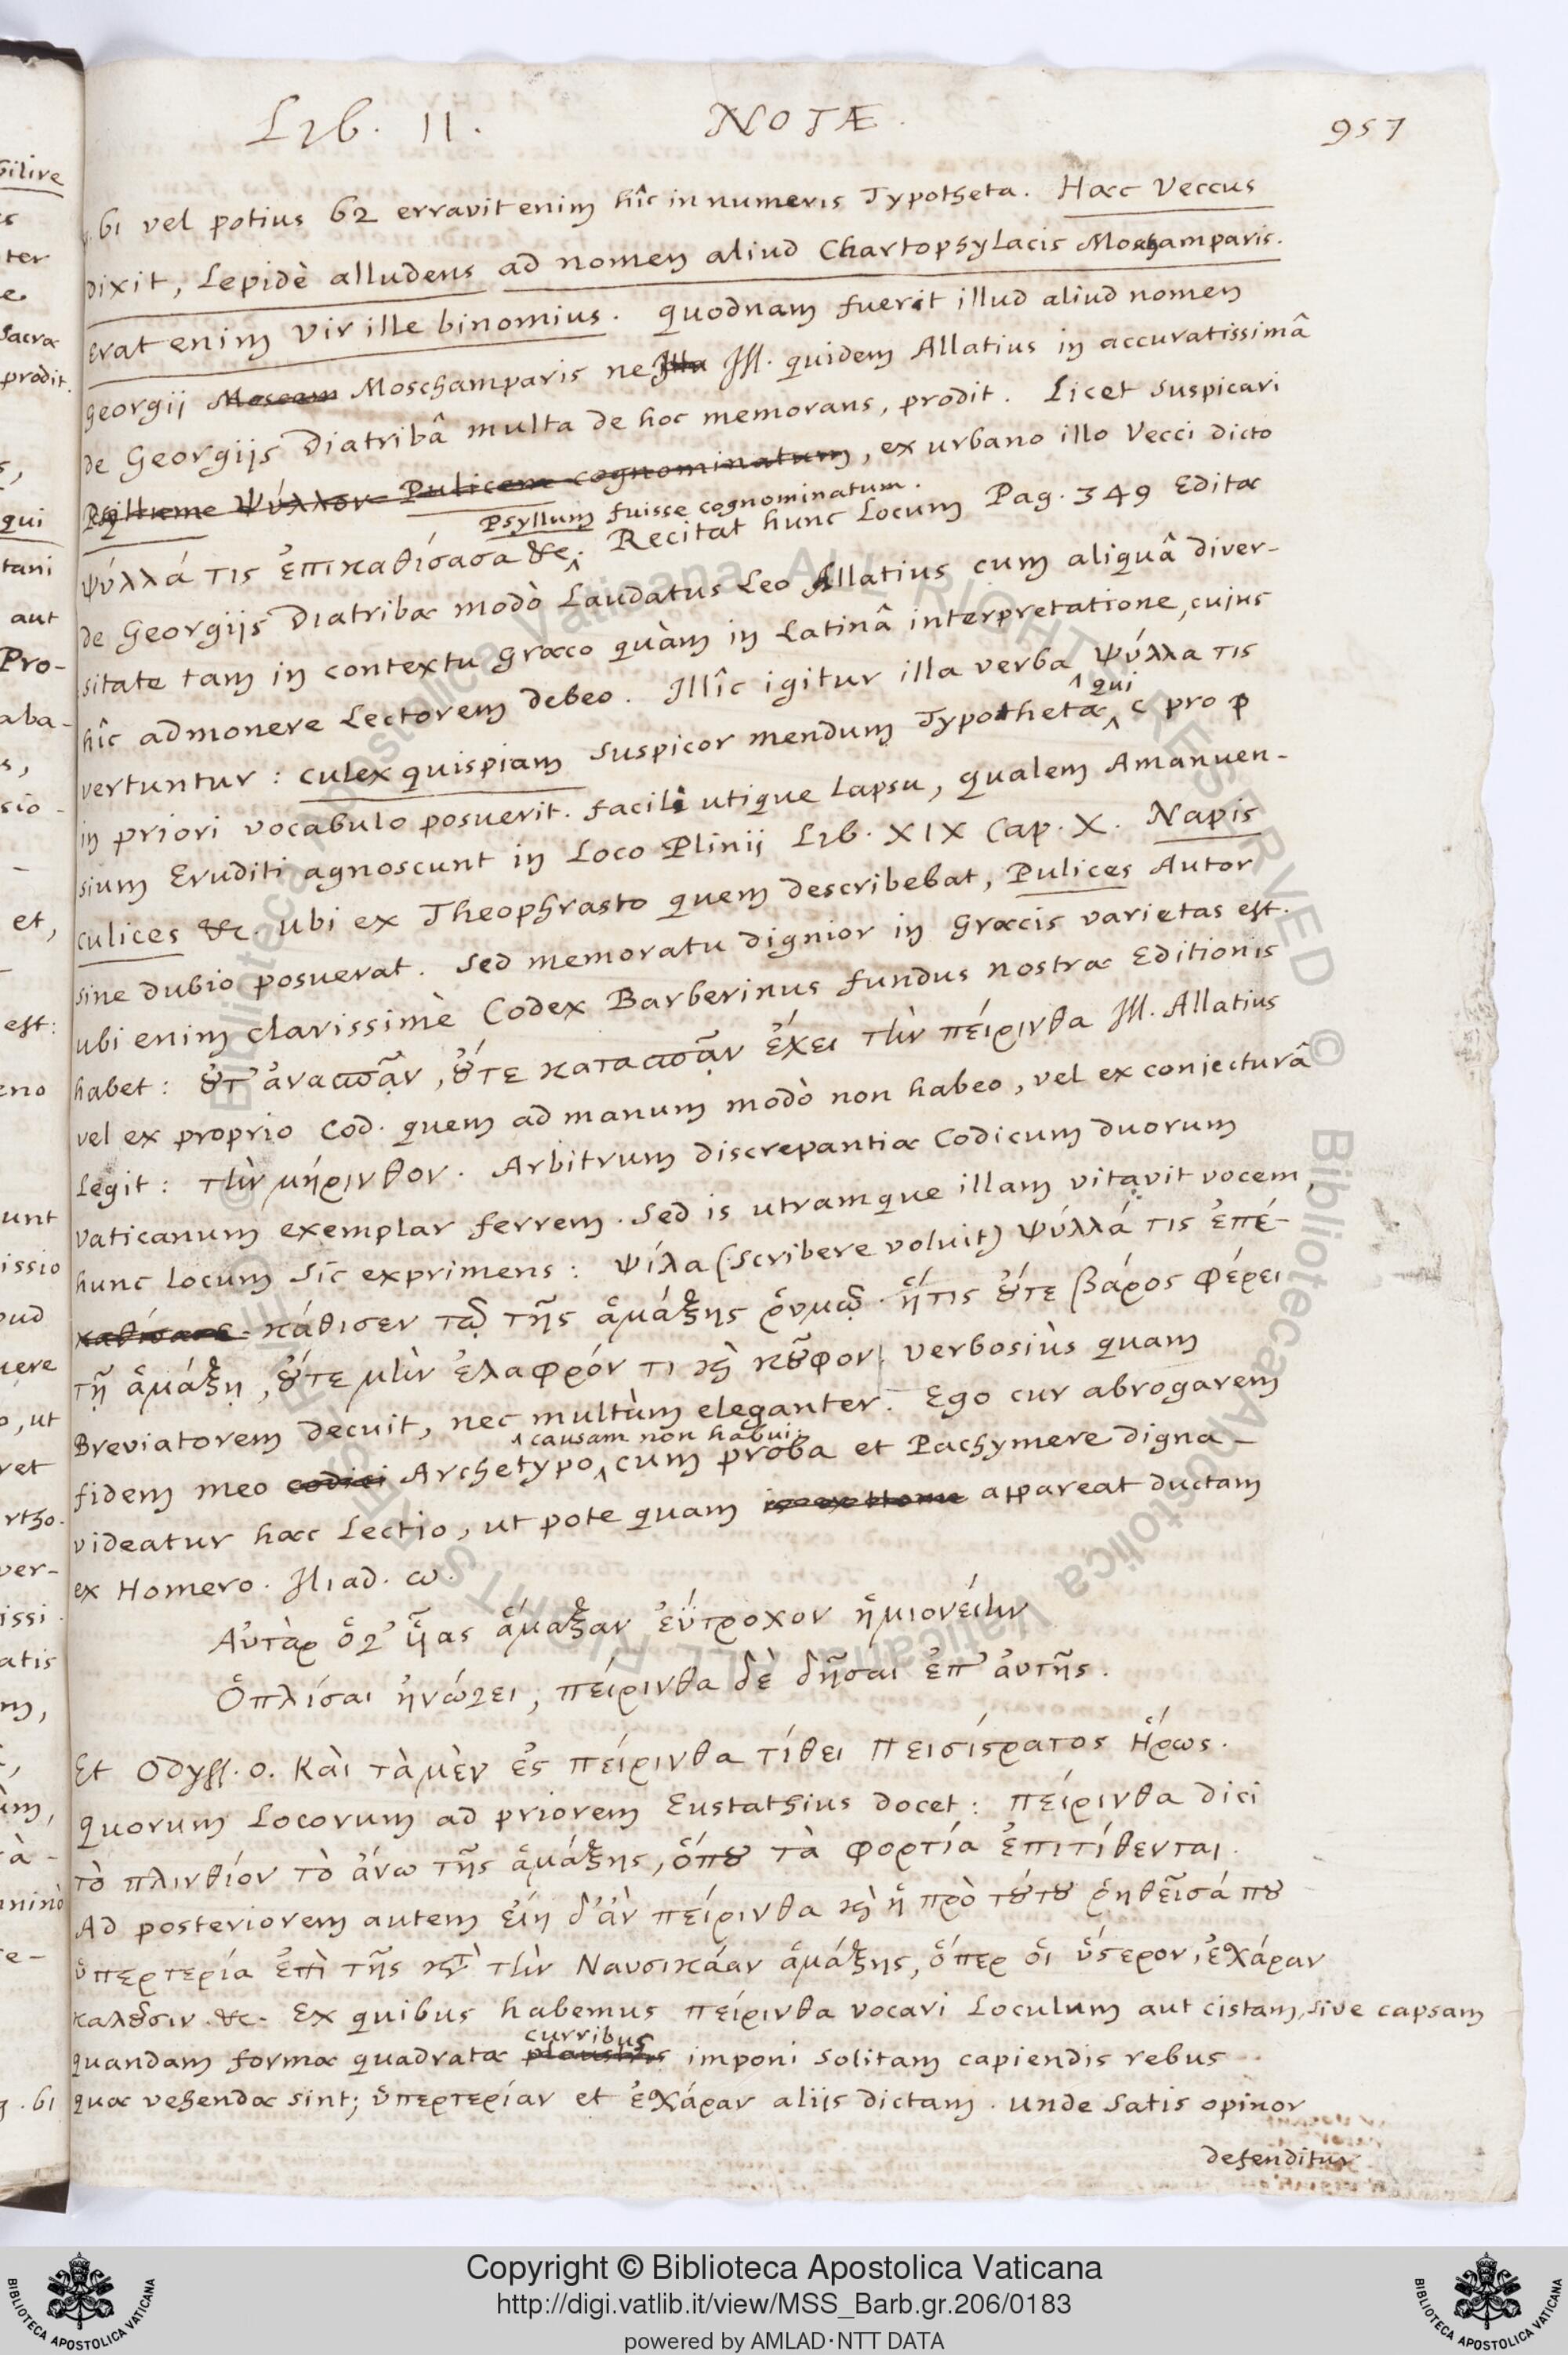 Lib. II. NOTÆ. 957
61 vel potius 62 erravit enim hîc in numeris Typotheta. Hæc Veccus
dixit, Lepidè alludens ad nomen aliud Chartophylacis Moschamparis.
erat enim vir ille binomius. quodnam fuerit illud aliud nomen
georgij Moscam Moschamparis ne Illu Ill. quidem Allatius in accuratissimâ
de Georgijs Diatribâ multa de hoc memorans, prodit. Licet suspicari
Psyllum Ψύλλον Pulicem cognominatum, ex urbano illo Vecci dicto
Psyllum fuisse cognominatum.
ψύλλά τις ἐπικαθίσασα &c. Recitat hunc Locum Pag. 349 Editæ
de Georgijs Diatribæ modò Laudatus Leo Allatius cum aliquâ diver-
sitate tam in contextu græco quàm in Latinâ interpretatione, cujus
hîc admonere Lectorem debeo. Illîc igitur illa verba ψύλλα τις
qui
vertuntur: culex quispiam suspicor mendum Typothetæ c pro p
in priori vocabulo posuerit. facili utique Lapsu, qualem Amanuen-
sium Eruditi agnoscunt in Loco Plinij Lib. XIX Cap. X. Napis
culices &c. ubi ex Theophrasto quem describebat, Pulices Autor
sine dubio posuerat. Sed memoratu dignior in græcis varietas est.
ubi enim clarissimè Codex Barberinus fundus nostræ Editionis
habet: ȣ̓τ' ἀνασπᾶν, ȣ̓́τε κατασπᾶν ἔχει τὴν πείρινθα Ill. Allatius
vel ex proprio Cod. quem ad manum modò non habeo, vel ex conjecturâ
Legit: τὴν μήρινθον. Arbitrum discrepantiæ Codicum duorum
vaticanum exemplar ferrem. Sed is utramque illam vitavit vocem,
hunc locum sic exprimens: ψίλα (scribere voluit) ψύλλά τις ἐπέ-
κάθισεν τῷ τῆς ἁμάξης ῥυμῷ. ἥτις ȣ̓́τε βάρος φέρει
τῇ ἁμάξῃ, ȣ̓́τε μὴν ἐλαφρόν τι ϗ̀ κȣ̃φον verbosiùs quam
Breviatorem decuit, nec multùm eleganter. Ego cur abrogarem
causam non habui.
fidem meo codici Archetypo, cum proba et Pachymere digna
videatur hæc Lectio, ut pote quam is ex Home appareat ductam
ex Homero. Iliad. ω.
Αὐτὰρ ὅγ' ᾗας ἅμαξαν ἐΰτροχον ἡμιονείην
Ὁπλίσαι ἠνώγει, πείρινθα δὲ δῆσαι ἐπ' ἀυτῆς.
Et Odyss. ο. Καὶ τὰ μὲν ἐς πείρινθα τίθει Πεισίϛρατος Ἥρως.
quorum Locorum ad priorem Eustathius docet: πείρινθα dici
τὸ πλινθίον τὸ ἄνω τῆς ἁμάξης, ὅπȣ τὰ φορτία ἐπιτίθενται.
Ad posteriorem autem εἴη δ' ἂν πείρινθα ϗ̀ ἡ πρὸ τȣ́τȣ ῥηθεῖσά πȣ
ὑπερτερία ἐπὶ τῆς κτ̀ τὴν Ναυσικάαν ἁμάξης, ὅπερ οἱ ὕϛερον, ἐχάραν
καλȣ̃σιν &c. Ex quibus habemus πείρινθα vocari Loculum aut cistam, sive capsam
curribus
quandam formæ quadratæ plaustris imponi solitam capiendis rebus
quæ vehendæ sint; ὑπερτερίαν et ἐχάραν alijs dictam. unde satis opinor
defenditur
Copyright © Biblioteca Apostolica Vaticana
http://digi.vatlib.it/view/MSS_Barb.gr.206/0183
powered by AMLAD·NTT DATA